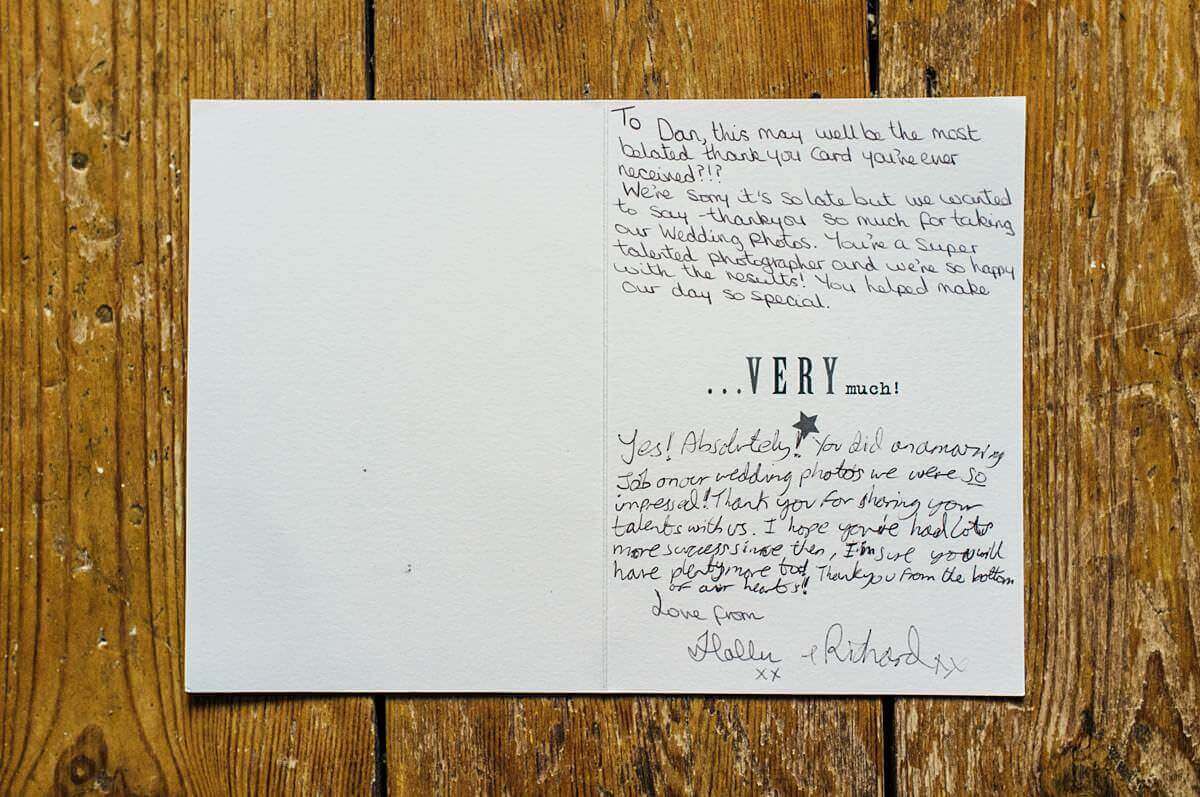 To Dan, this may well be the most
belated thank you card you're ever
received?!?
We're sorry it's so late but we wanted
to say thankyou so much for taking
our wedding photos. You're a super
talented photographer and we're so happy
with the results! You helped make
our day so special.
...VERY much!
Yes! Absolutely! You did an amazing
job on our wedding photos we were so
impressed! Thank you for sharing your
talents with us. I hope you've had lots
more success since then, I'm sure you will
have plenty more too! Thankyou from the bottom
of our hearts!!
Love from
& Richard xx
xx